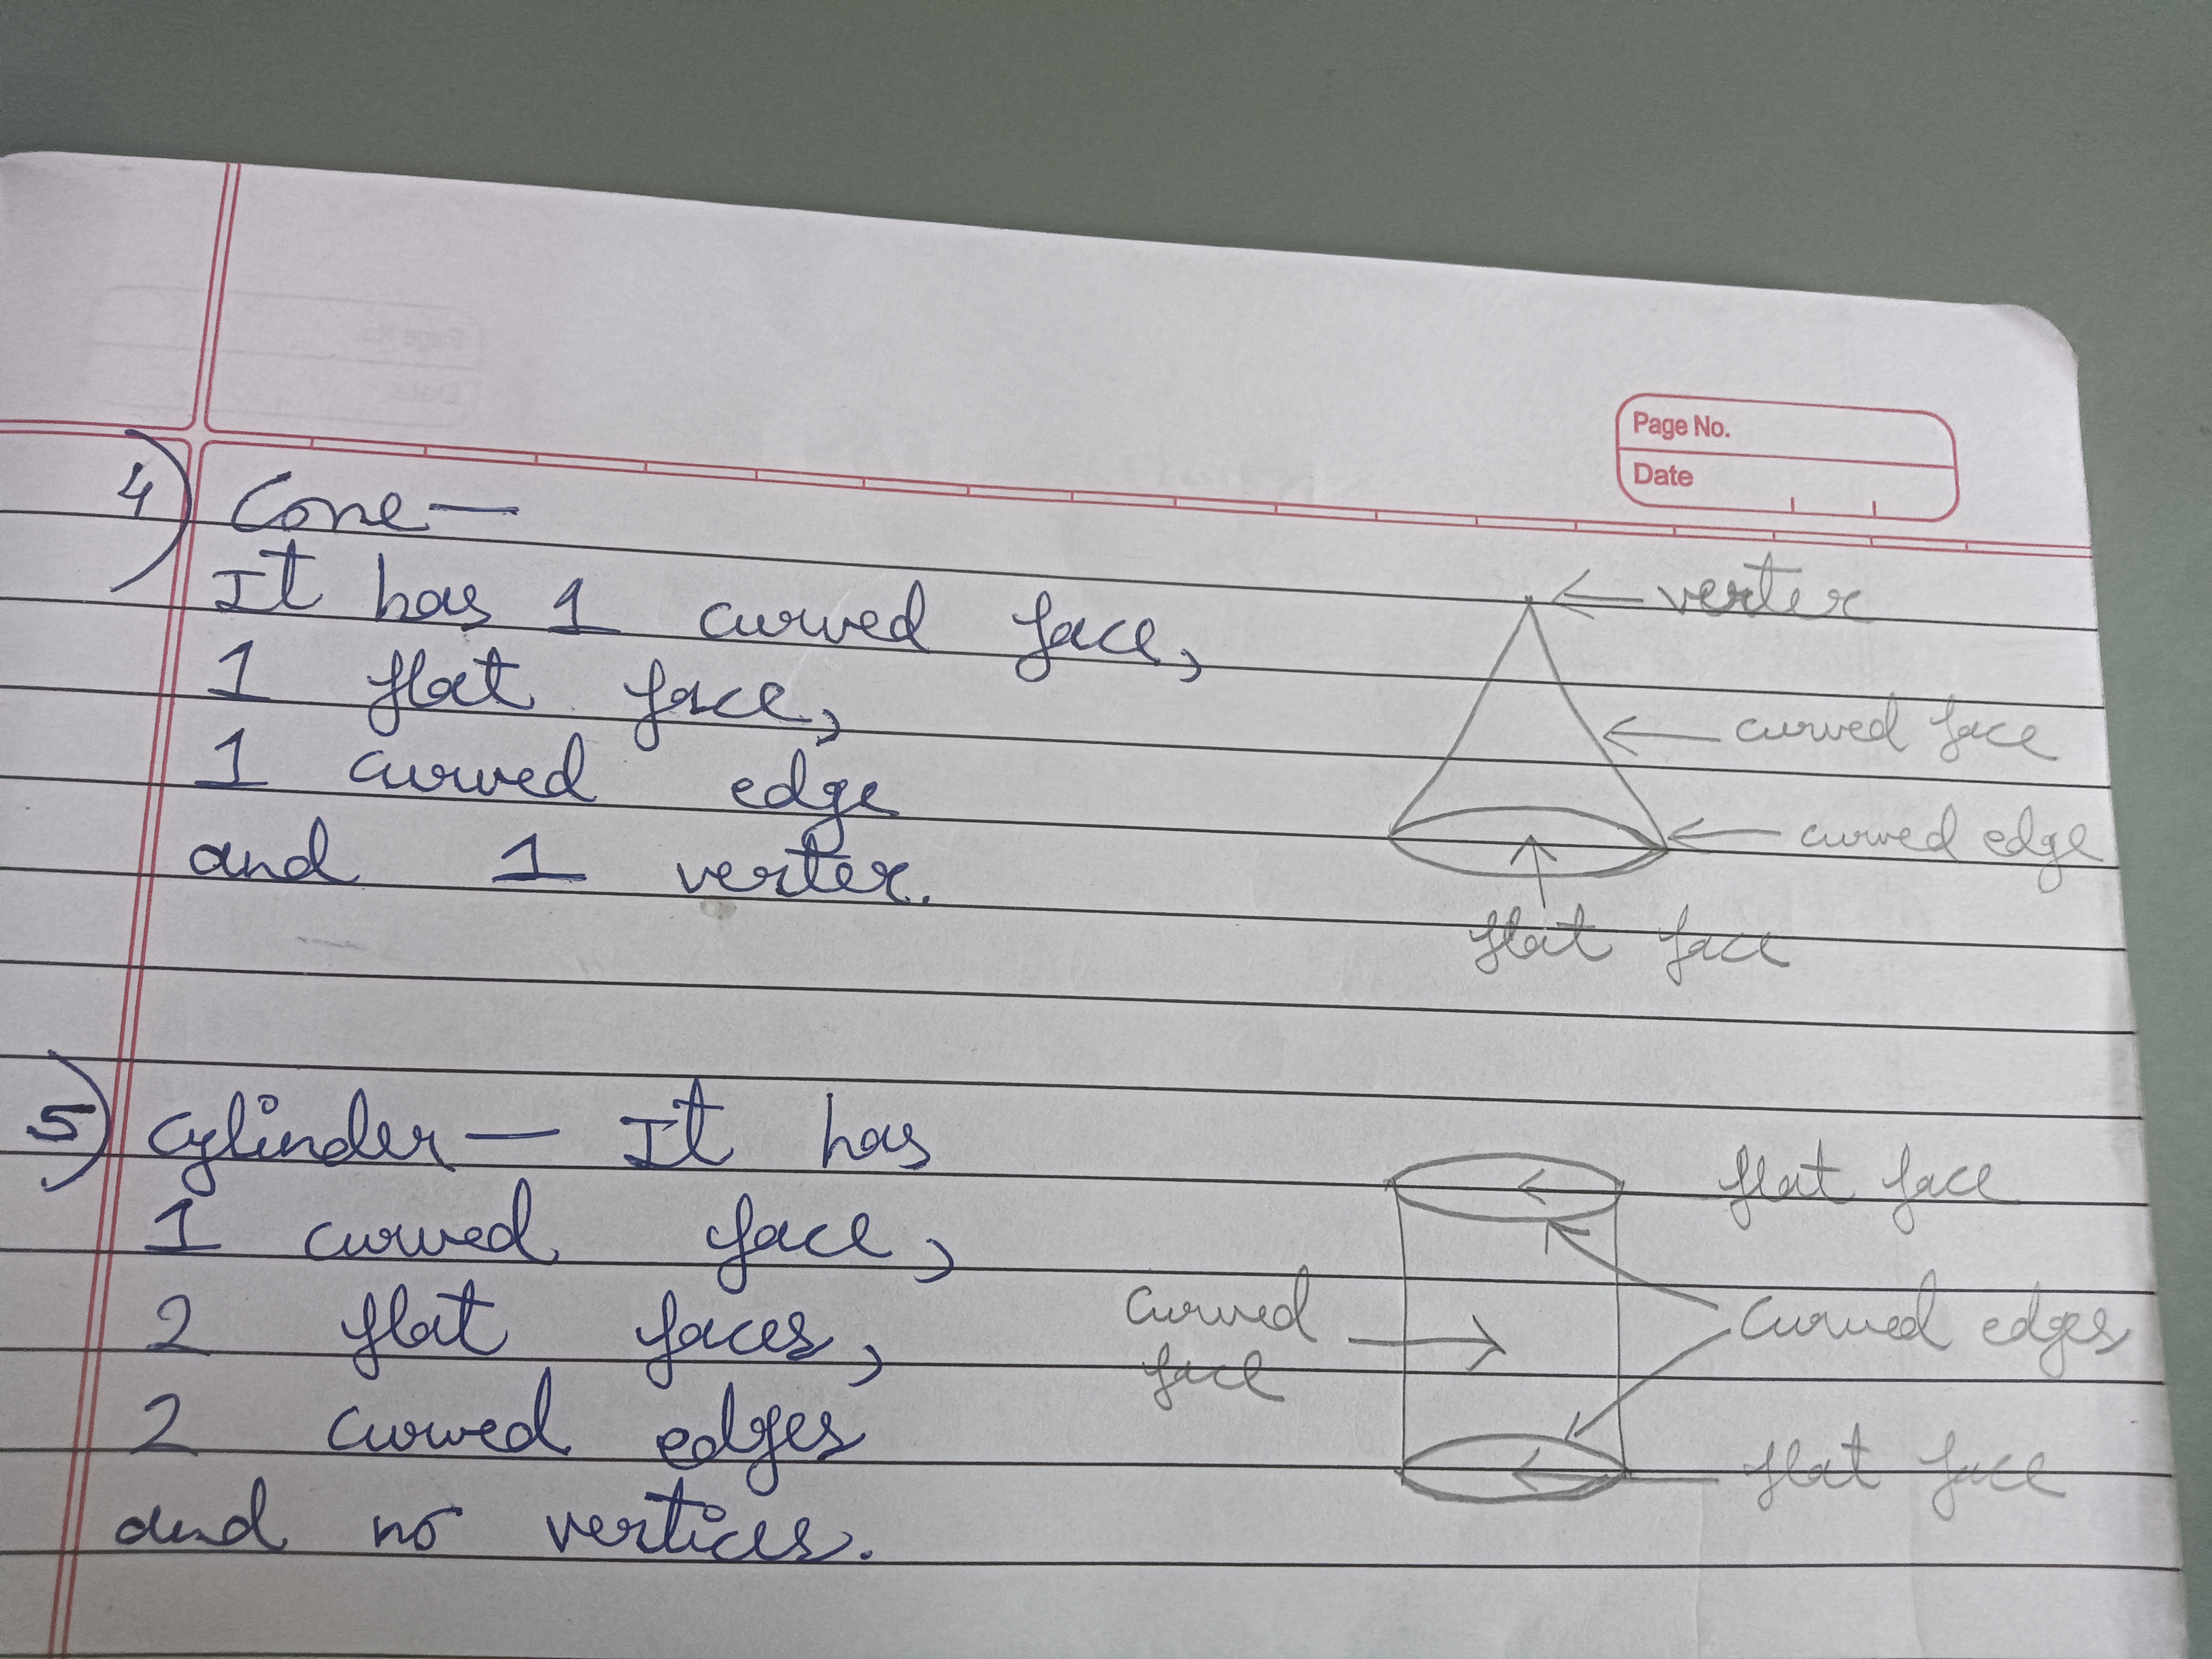 Page No.
Date
4) Cone —
It has 1 curved face,
1 flat face,
1 curved edge
and 1 vertex.
vertex
curved face
curved edge
flat face
5) cylinder — It has
1 curved face,
2 flat faces,
2 curved edges
and no vertices.
flat face
curved
face
curved edges
flat face